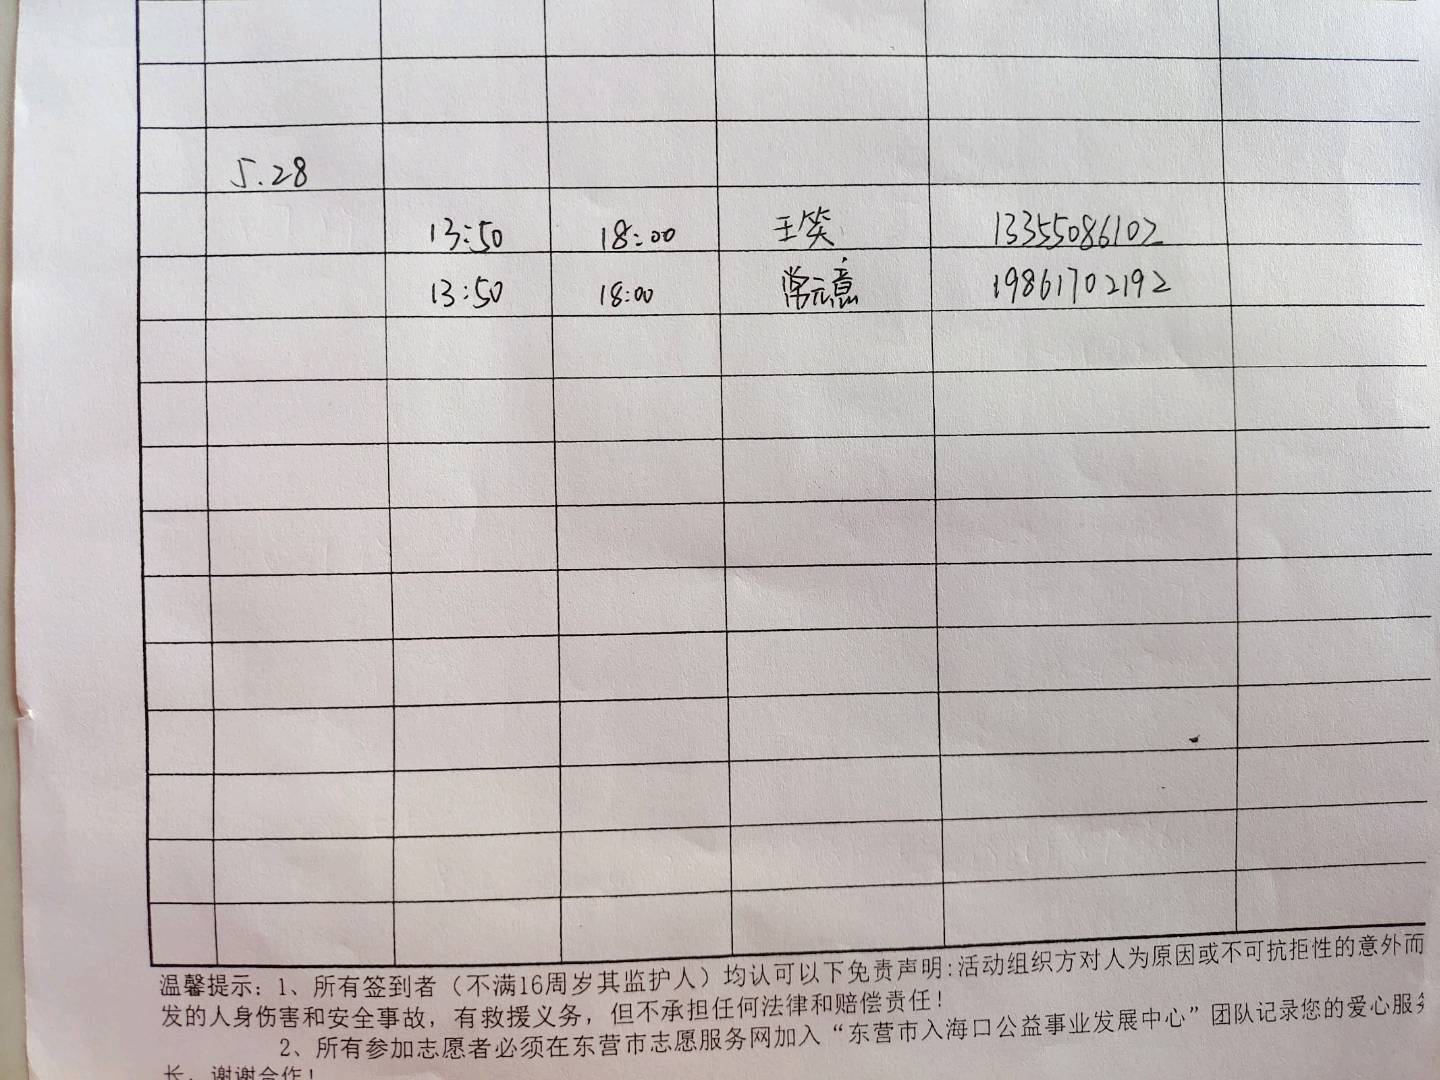 5.28
13:50 18:00 王笑 13355086102
13:50 18:00 常元意 19861702192
温馨提示：1、所有签到者（不满16周岁其监护人）均认可以下免责声明：活动组织方对人为原因或不可抗拒性的意外而
发的人身伤害和安全事故，有救援义务，但不承担任何法律和赔偿责任！
2、所有参加志愿者必须在东营市志愿服务网加入“东营市入海口公益事业发展中心”团队记录您的爱心服务
长，谢谢合作！